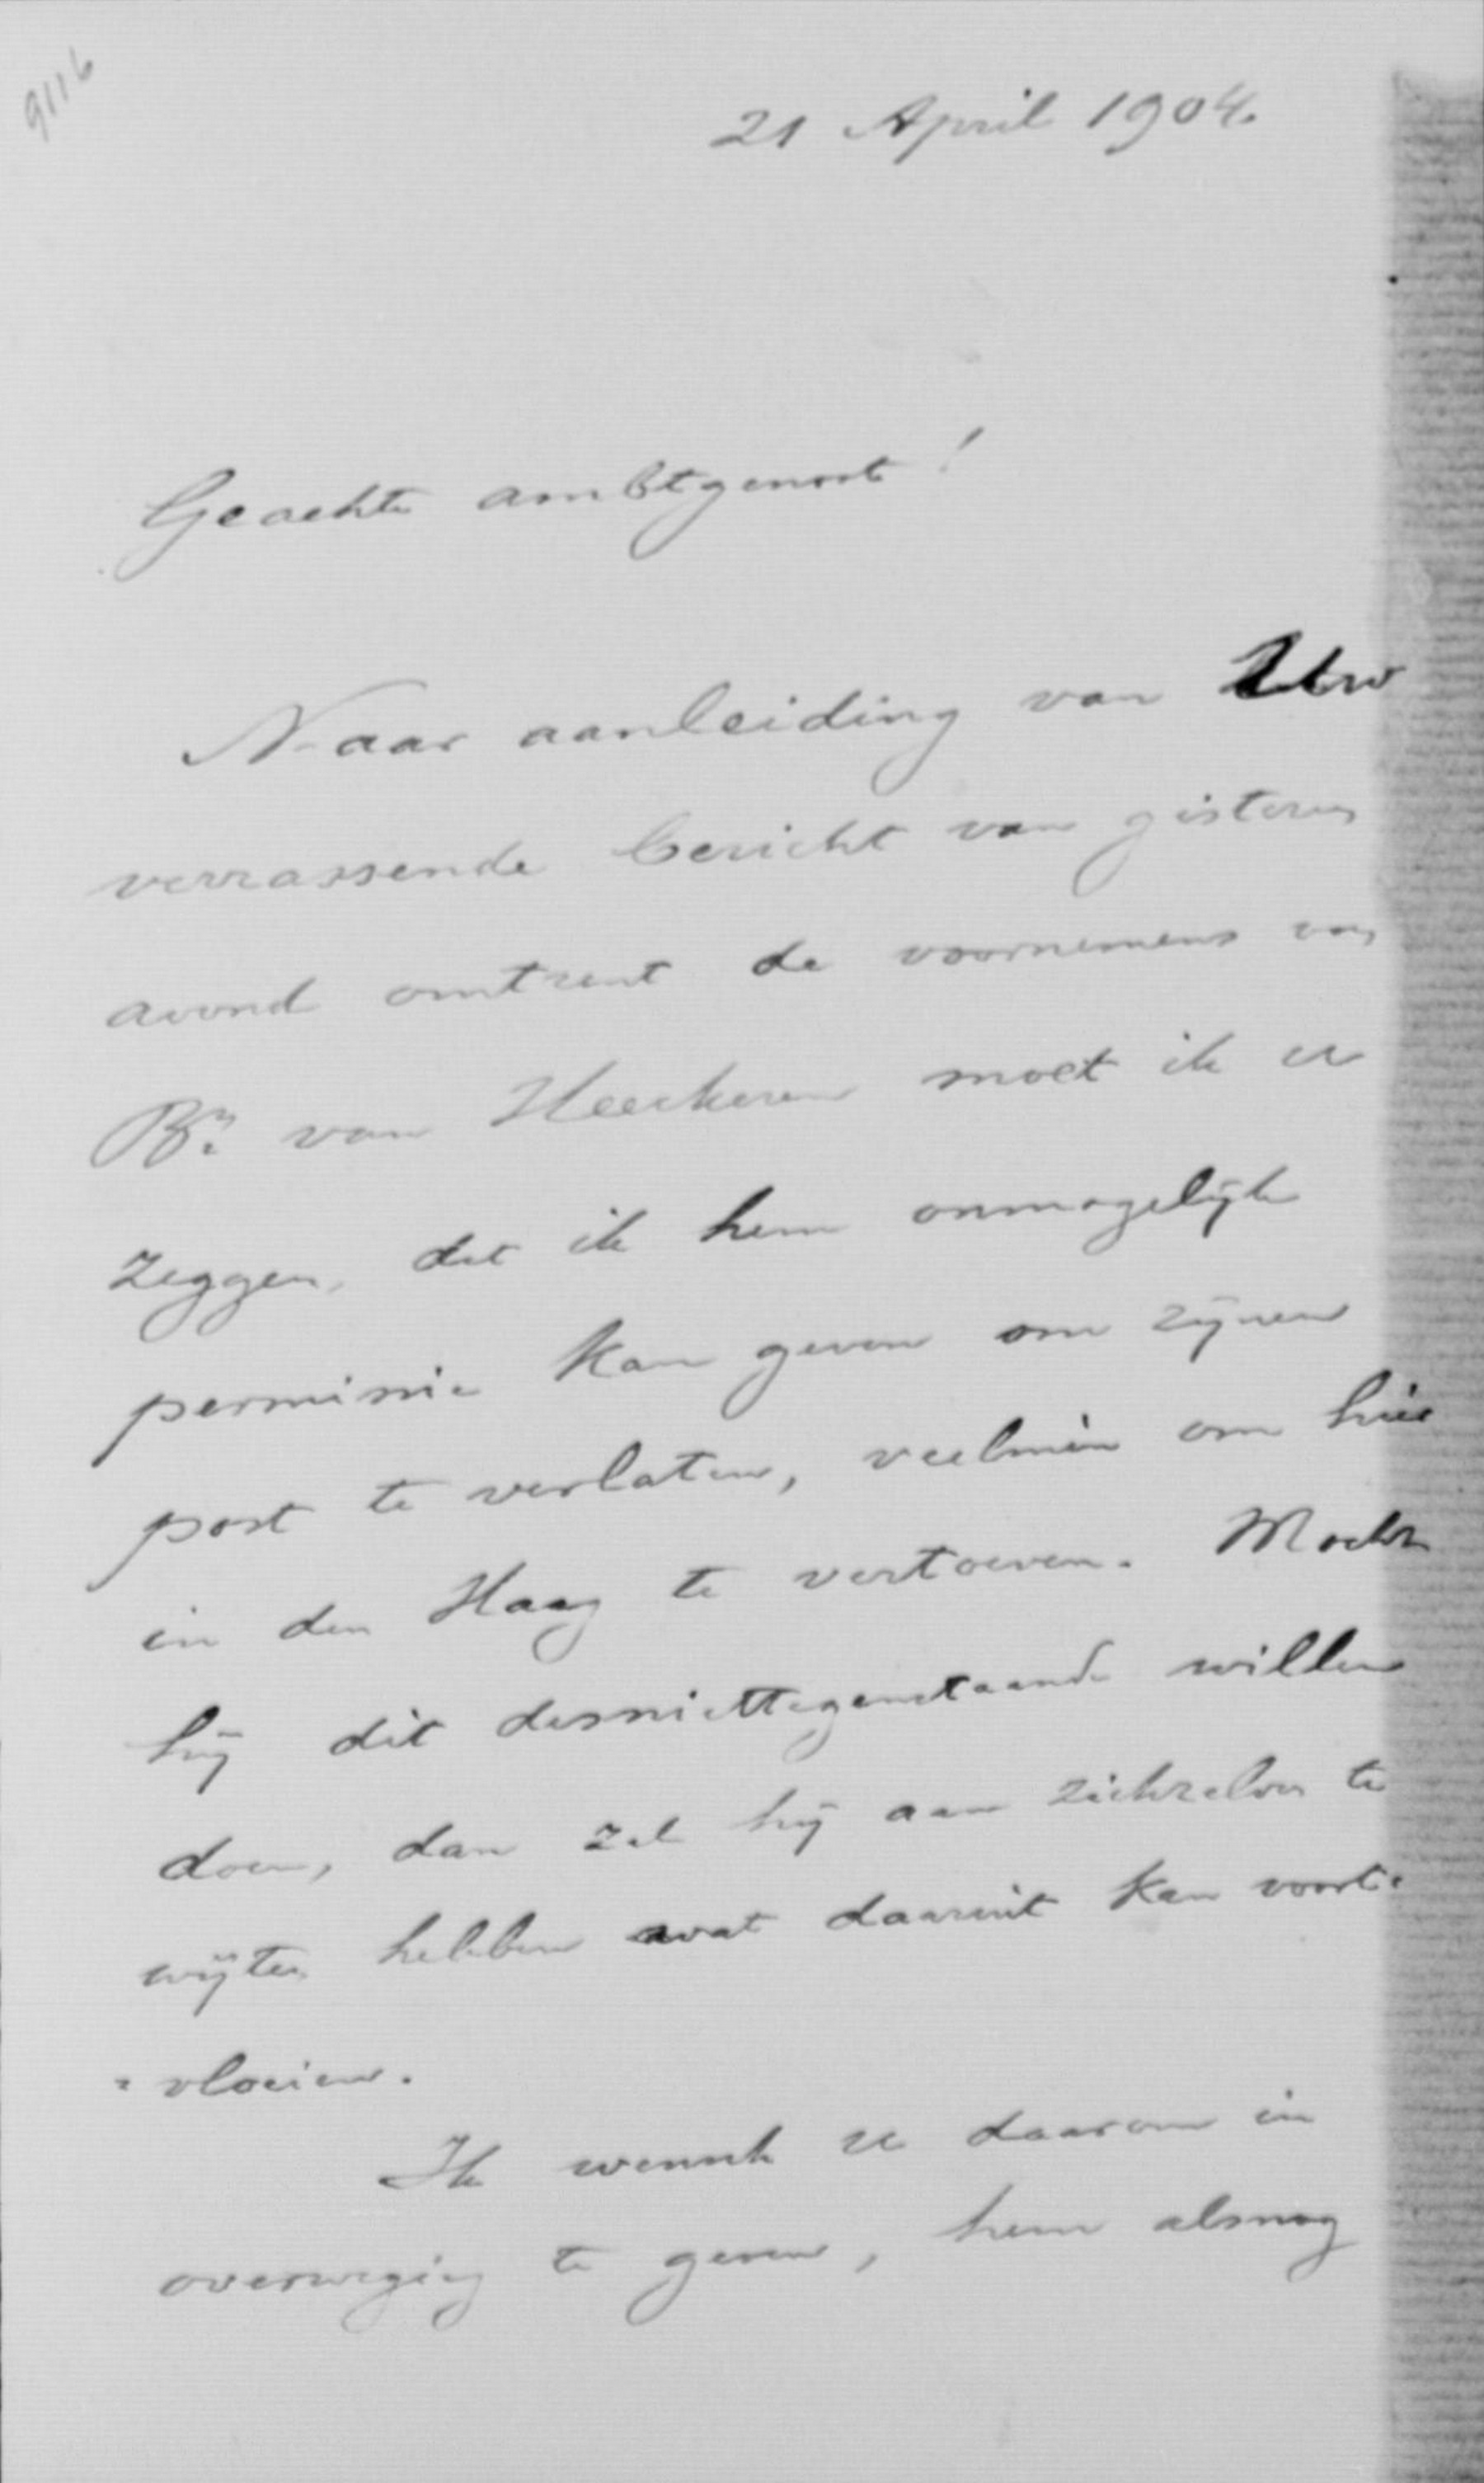 9116
21 April 1904.
Geachte ambtgenoot!
Naar aanleiding van Uw
verrassende bericht van gisteren
avond omtrent de voornemens van
Bn. van Heeckeren moet ik u
zeggen, dat ik hem onmogelijk
permissie kan geven om zijnen
post te verlaten, veelmin om hier
in den Haag te vertoeven. Mocht
hij dit desniettegenstaande willen
doen, dan zal hij aan zichzelven te
wijten hebben wat daaruit kan voort-
-vloeien.
Ik wensch u daarom in
overweging te geven, hem alsnog